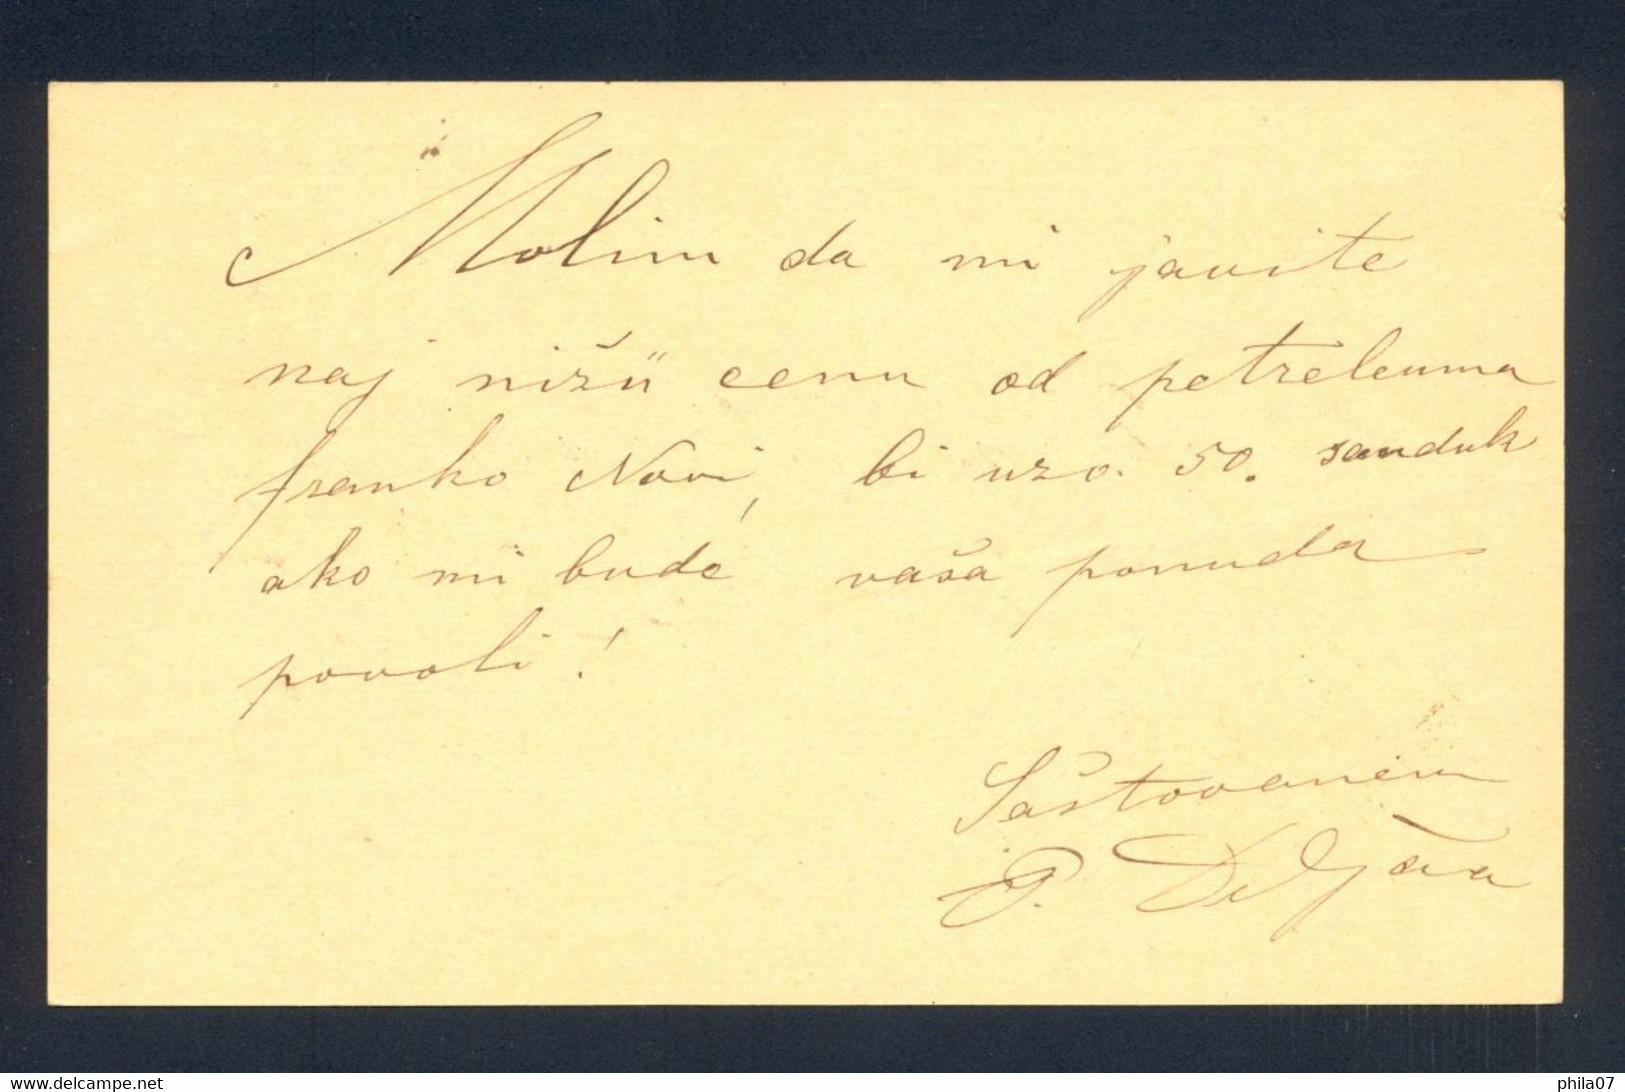 Molim da mi javite
naj nižu cenu od petreleuma
franko Novi, bi uzo. 50. sanduk
ako mi bude vaša ponuda
povoli!
Saštovanem
P.
www.delcampe.net
phila07